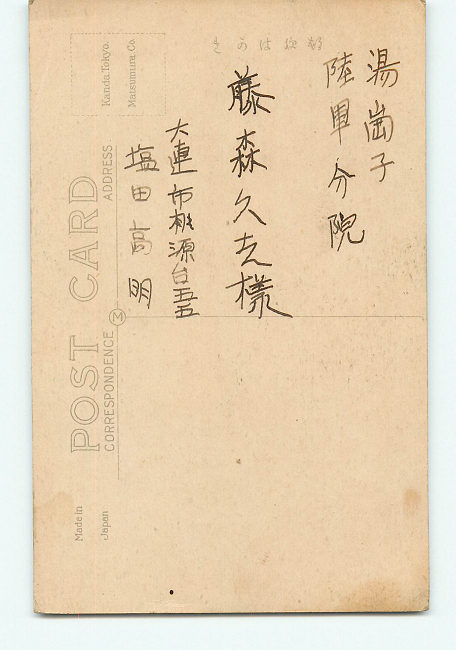 きかはゆう便郵
湯崗子
陸軍分院
藤森久志様
大連市桃源台五五
塩田高明
Kanda Tokyo.
Matsumura Co.
POST CARD
ADDRESS
M
CORRESPONDENCE
Made in
Japan